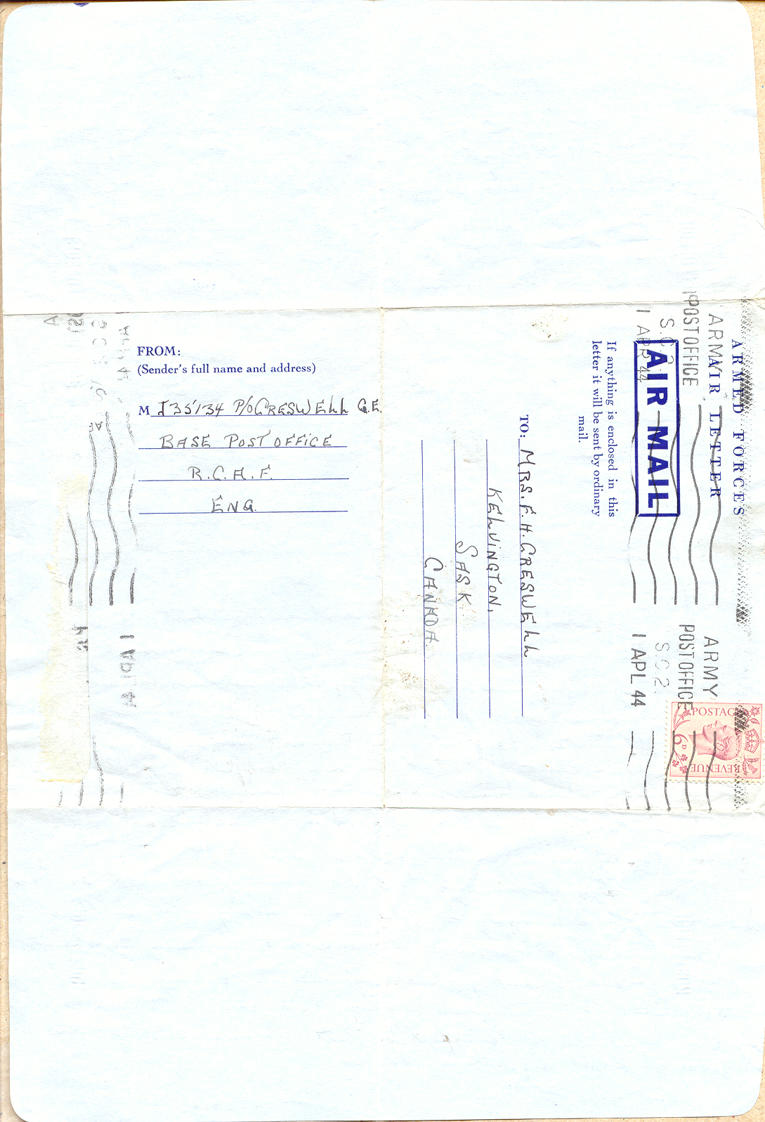 FROM:
(Sender's full name and address)
M J35134 P/O CRESWELL G.E.
BASE POST OFFICE
R.C.A.F.
ENG.
ARMED FORCES
AIR LETTER
AIR MAIL
If anything is enclosed in this
letter it will be sent by ordinary
mail.
TO: MRS. F. H. CRESWELL
KELVINGTON,
SASK
CANADA.
ARMY
POST OFFICE
S.C.2.
1 APR 44
ARMY
POST OFFICE
S.C 2.
1 APL 44
POSTAGE
6D
REVENUE